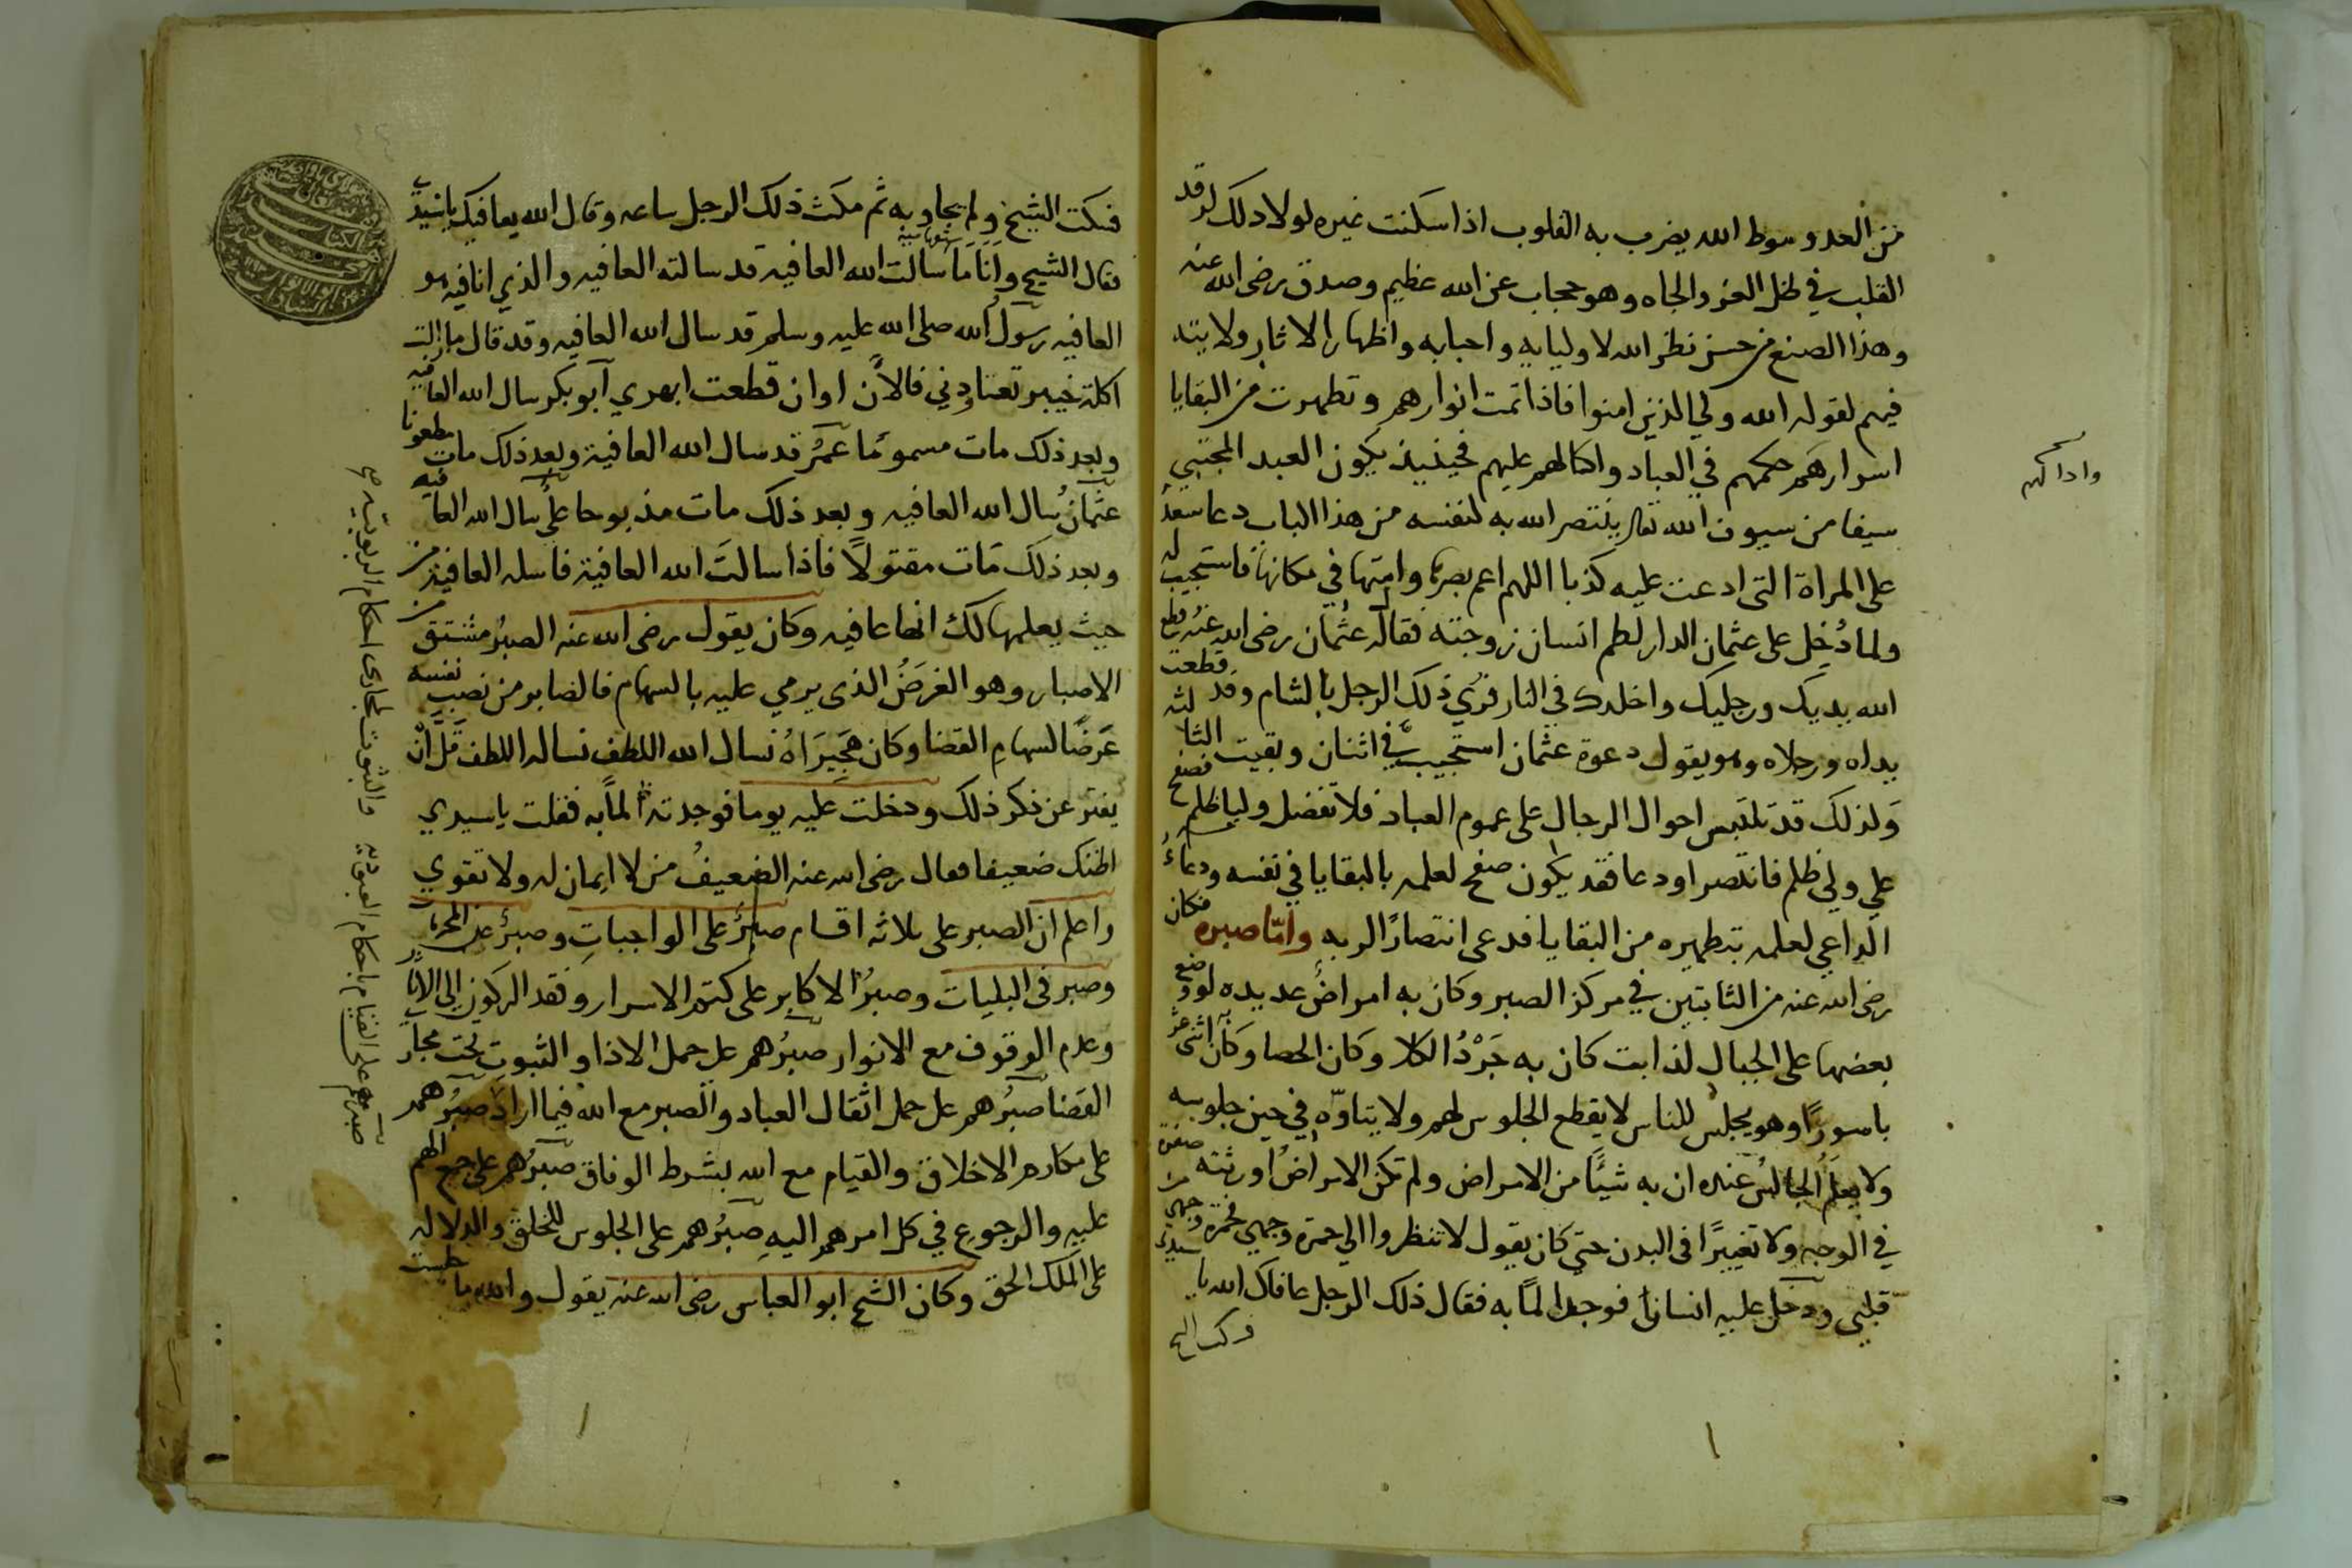 من العدو سوط الله يضرب به القلوب اذا سكنت غيره لولا ذلك لرقد
القلب في ظل العز والجاه وهو حجاب عن الله عظيم وصدق رضى الله عنه
وهذا الصنع من حسن نظر الله لاوليايه واحبابه واظهار الاثار ولايته
فيهم لقوله الله ولي الذين امنوا فاذا تمت انوارهم وتطهرت من البقايا
اسرارهم حكمهم في العباد وادالهم عليهم فحينيذ يكون العبد المجتبي
واذا لهم
سيفا من سيوف الله تعالى ينتصر الله به لنفسه من هذا الباب دعا سعد
على المراة التى ادعت عليه كذبا اللهم اعم بصرها وامتها في مكانها فاستجيب له
ولما دُخِل على عثمان الدار لطم انسان زوجته فقال له عثمان رضى الله عنه قطع
الله يديك ورجليك واخلدك في النار فرُي ذلك الرجل بالشام وقد قطعت
يداه ورجلاه وهو يقول دعوة عثمان استجيب في اثنان وبقيت الثالثه
وَلذلك قد تلتبس احوال الرجال على عموم العباد فلا تفضل وليا ظلم فصفح
علي ولي ظلم فانتصر او دعا فقد يكون صفح لعلمه بالبقايا في نفسه ودعاءُ
الداعي لعلمه بتطهيره من البقايا فدعى انتصارًا لربه وامّا صبره فكان
رضى الله عنه من الثابتين في مركز الصبر وكان به امراضٌ عديده لو وضع
بعضها على الجبال لذابت كان به بَرْدُ الكلا وكان الحصا وكان به اثنى عشر
باسورًا وهو يجلس للناس لا يقطع الجلوس لهم ولا يتاوّه في حين جلوسه
ولا يعلَمُ الجالسُ عنده ان به شيئًا من الامراض ولم تكن الامراضُ اورثته صفرة
في الوجه ولا تغييرًا فى البدن حتي كان يقول لا تنظروا الي حمرة وجهي فحمرة وجهي من
قلبي ودخل عليه انسانا فوجد المًا به فقال ذلك الرجل عافاك الله يا سيدي
فسكت الشيخ
فسكت الشيخ ولم يجاوبه ثم مكث ذلك الرجل ساعه وقال الله يعافيك يا سيدي
فقال الشيخ وانَا مَا سَالت الله العافيه قد سالته العافيه والذي انا فيه هو
العافيه رسول الله صلى الله عليه وسلم قد سال الله العافيه وقد قال ما زالت
اكلة خيبر تعتاودني فالاْن اوان قطعت ابهري آبو بكر سال الله العافيه
وبعد ذلك مات مسمومًا عمَرُ قد سال الله العافية وبعد ذلك مات مطعونا
عثمانُ سال الله العافيه وبعد ذلك مات مذبوحا عليُّ سال الله العافيه
وبعد ذلك مَات مقتولًا فاذا سالتَ الله العافية فاسله العافية من
حيث يعلمها لك انها عافيه وكان يقول رضى الله عنه الصبرُ مشتق من
الاصبار وهو الغرَضُ الذى يرمي عليه بالسهام فالصابر من نصب نفسه
غرَضًا لسهامِ القضا وكان هَجِيَرَاهُ نسال الله اللطف نساله اللطف قَلَّ انْ
يفتر عن ذكر ذلك ودخلت عليه يوما فوجدته المًا به فقلت يا سيدي
اظنك ضعيفا فقال رضى الله عنه الضعيفُ من لا ايمان له ولا تقوي
واعلم ان الصبر على ثلاثه اقسام صبرٌ على الواجباتِ وصبرٌ عن المحرمات
وصبر فى البليات وصبرُ الاكابر على كتم الاسرار وفقد الركون الى الاثار
وعدم الوقوف مع الانوار صبرُهم على حمل الاذا والثبوتِ تحت مجار
القضا صبرُهم على حمل اثقال العباد والصبر مع الله فيما اراد صبرُهم
على مكارم الاخلاق والقيام مع الله بشرط الوفاق صبرُهم على جمع الهم
عليه والرجوع في كل امرهم اليهِ صبرُهم على الجلوس للخلق والدلاله
على الملك الحق وكان الشيخ ابو العباس رضى الله عنه يقول والله ما جلست
صبرهم على القيام باحكام العبوديه والثبوت لمجارى احكام الربوبيه صح